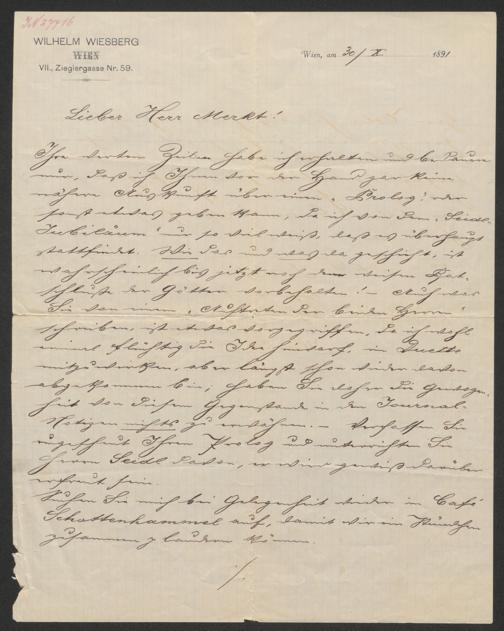 WILHELM WIESBERG
WIEN
VII., Zieglergasse Nr. 59.
Wien, am 30/X 1891
Lieber Herr Merkt!
Ihre werten Zeilen habe ich erhalten und bedaure
nun, daß ich Ihnen vor der Hand gar keine
nähere Auskunft über einen "Prolog" oder
sonst etwas geben kann, da ich von dem "Seidl-
Jubiläum" nur so viel weiß, daß es überhaupt
stattfindet. Wie das und was da geschieht, ist
wahrscheinlich bis jetzt noch dem weisen Rat-
schlusse der Götter vorbehalten! Auch was
Sie von einem "Auftreten der beiden Herrn"
schreiben, ist etwas vorgegriffen, da ich wohl
einmal flüchtig die Idee hinwarf, in Duetto
mitzuwirken, aber längst schon wieder davon
abgekommen bin; haben Sie daher die Gewogen-
heit von diesem Gegenstande in den Journal-
Notizen nichts zu erwähnen. – Verfassen Sie
ungescheut Ihren Prolog und unterrichten Sie
Herrn Seidl davon, er wird gewiß darüber
erfreut sein.
Suchen Sie mich bei Gelegenheit wieder im Café
Schottenhammel auf, damit wir ein Stündchen
zusammen plaudern können.
./.